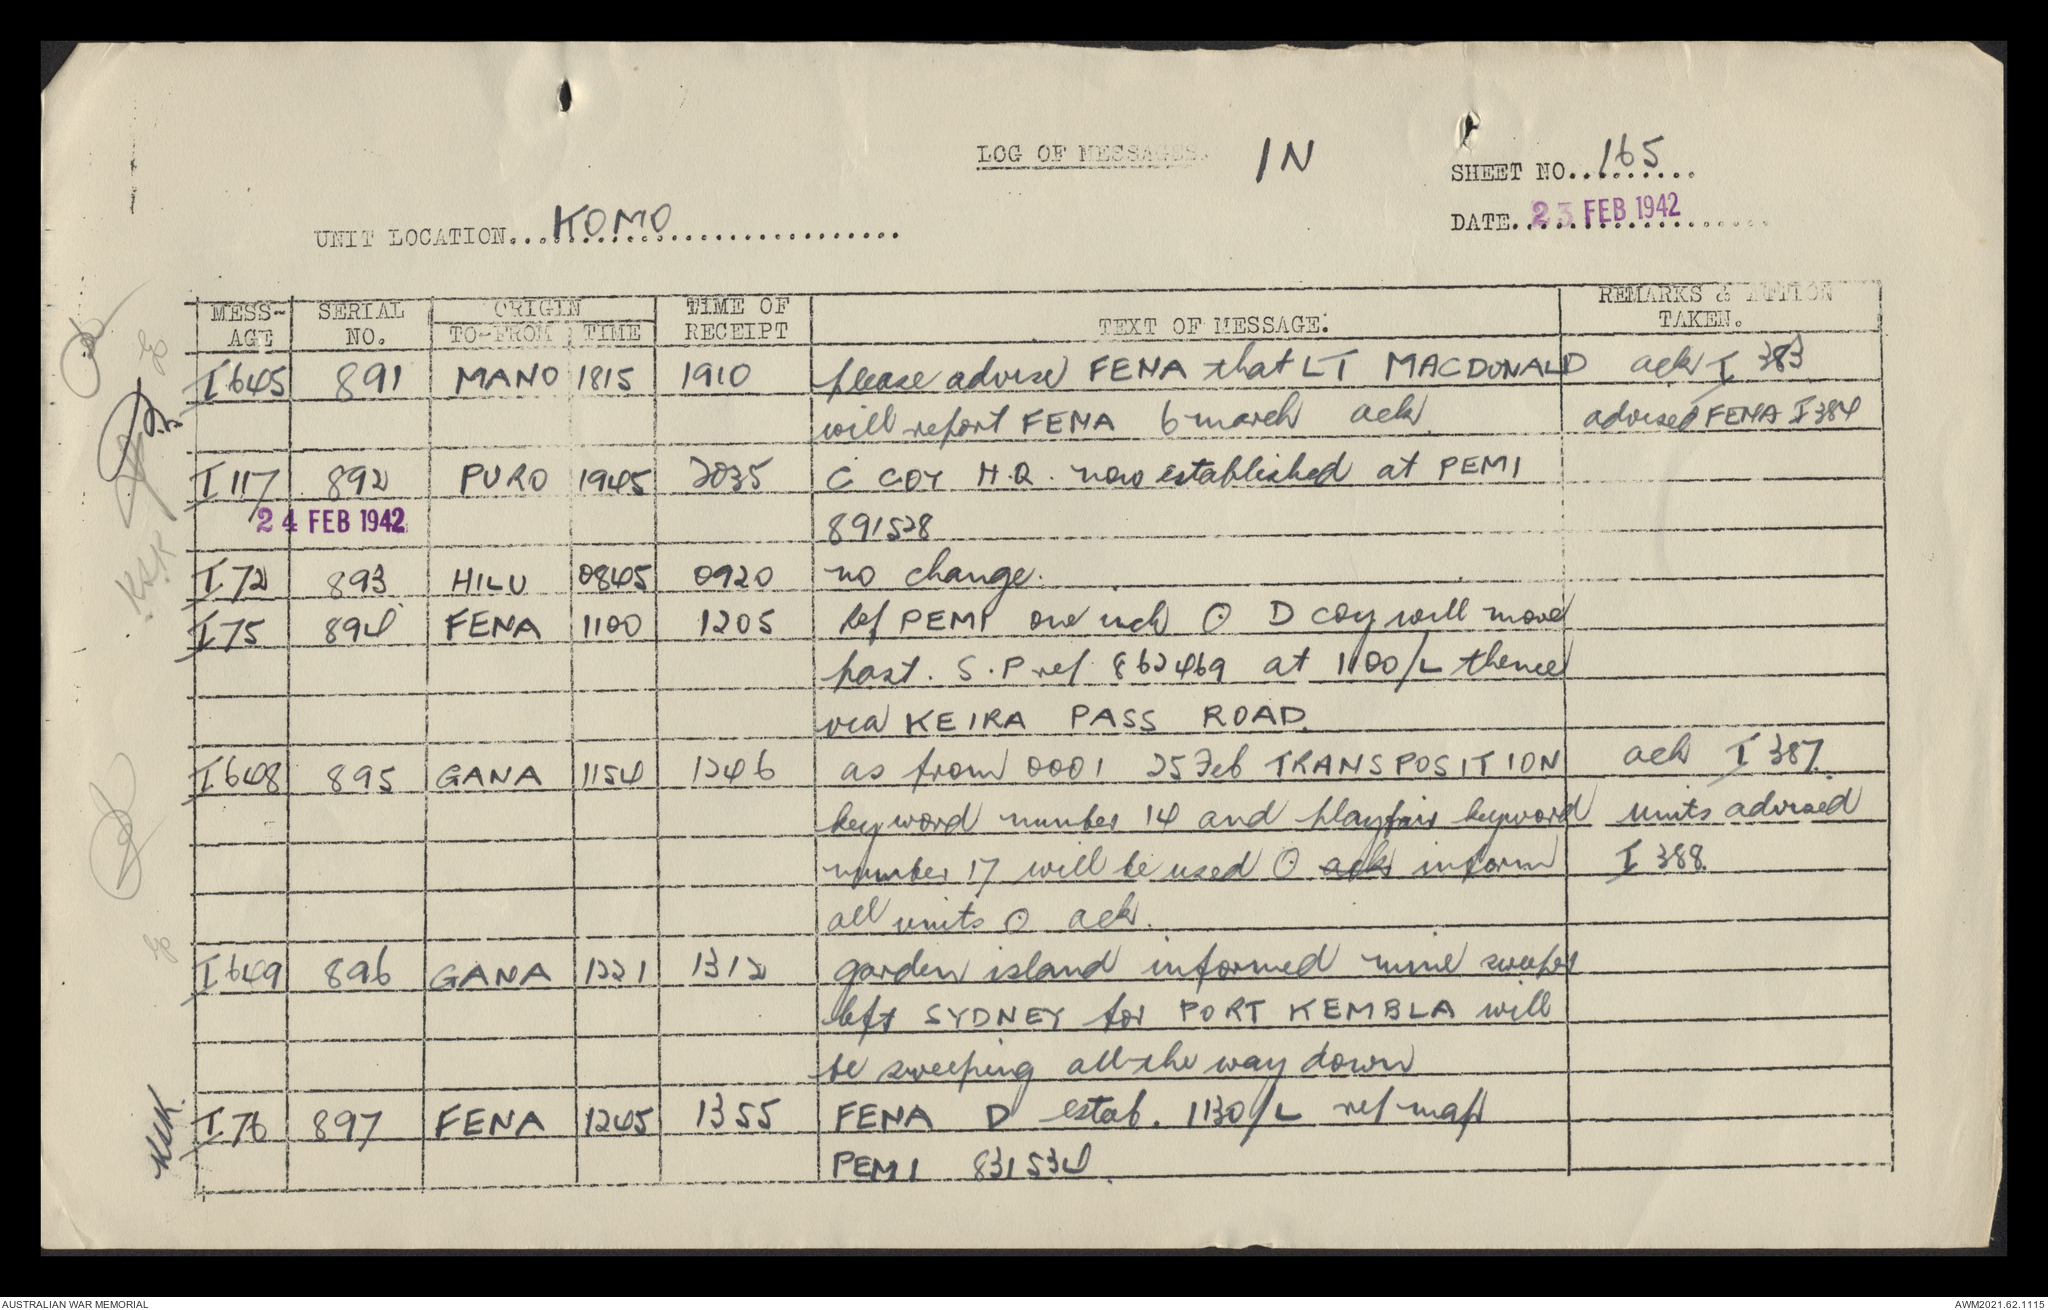 LOG OF MESSAGES. IN
SHEET NO. 165
UNIT LOCATION KOMO
DATE. 23 FEB 1942
MESS-AGE SERIAL NO. ORIGIN TO-FROM TIME TIME OF RECEIPT TEXT OF MESSAGE. REMARKS & ACTION TAKEN.
I 645 891 MANO 1815 1910 please advise FENA that LT MACDONALD ack I 383
will report FENA 6 march ack advised FENA I 384
I 117 892 PURO 1945 2035 C COY H.Q. now established at PEMI
24 FEB 1942 891528
I 72 893 HILU 0845 0920 no change.
I 75 894 FENA 1100 1205 Ref PEMI one inch O D coy will move
past. S.P ref 862469 at 1100/L thence
via KEIRA PASS ROAD.
I 648 895 GANA 1154 1246 as from 0001 25 Feb TRANSPOSITION ack I 387.
keyword number 14 and playfair keyword units advised
number 17 will be used O ack inform I 388
all units O ack.
I 649 896 GANA 1221 1312 garden island informed mine sweeper
left SYDNEY for PORT KEMBLA will
be sweeping all the way down
KSK. I 76 897 FENA 1245 1355 FENA D estab. 1130/L ref map
PEMI 831534
AUSTRALIAN WAR MEMORIAL
AWM2021.62.1115